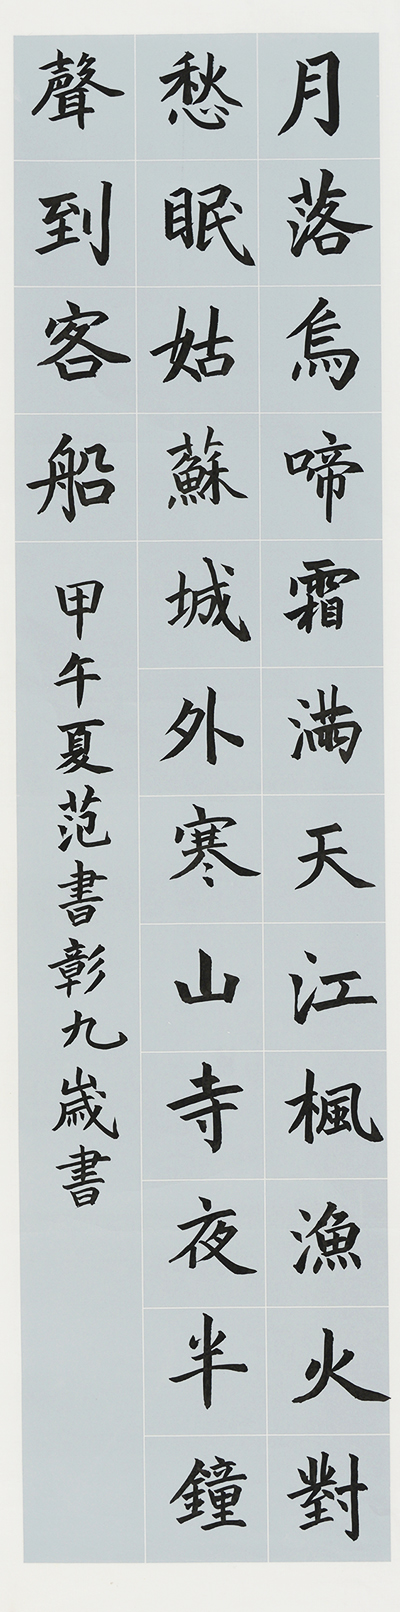 月落烏啼霜滿天江楓漁火對
愁眠姑蘇城外寒山寺夜半鐘
聲到客船
甲午夏范書彰九歲書